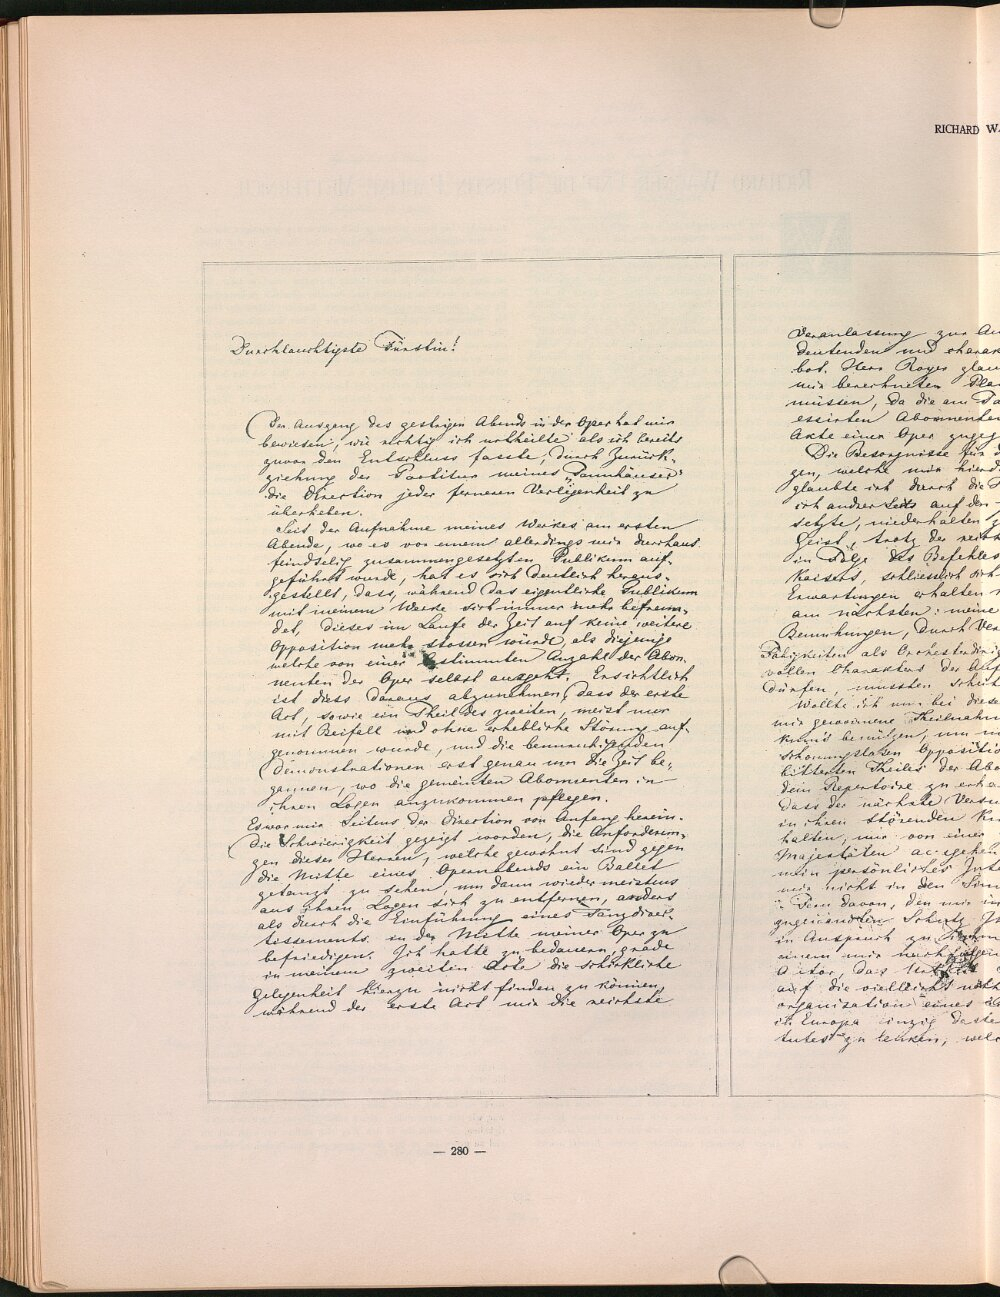 RICHARD W
Durchlauchtigste Fürstin!
Der Ausgang des gestrigen Abends in der Oper hat mir
bewiesen, wie richtig ich urtheilte als ich bereits
zuvor den Entschluss fasste, durch Zurück-
ziehung der Partitur meines „Tannhäuser"
die Direction jeder ferneren Verlegenheit zu
überheben.
Seit der Aufnahme meines Werkes am ersten
Abende, wo es vor einem allerdings mir durchaus
feindselig zusammengesetzten Publikum auf-
geführt wurde, hat es sich deutlich heraus-
gestellt, dass, während das eigentliche Publikum
mit meinem Werke sich immer mehr befreun-
det, dieses im Laufe der Zeit auf keine weitere
Opposition mehr stossen würde als diejenige
welche von einer bestimmten Anzahl der Abon-
nenten der Oper selbst ausgeht. Ersichtlich
ist diess daraus abzunehmen, dass der erste
Act, sowie ein Theil des zweiten, meist nur
mit Beifall und ohne erhebliche Störung auf-
genommen wurde, und die beunruhigenden
Demonstrationen erst genau um die Zeit be-
gannen, wo die gemeinten Abonnenten in
ihren Logen anzukommen pflegen.
Es war mir Seitens der Direction von Anfang herein
die Schwierigkeit gezeigt worden, die Anforderun-
gen dieser Herren, welche gewohnt sind gegen
die Mitte eines Opernabends ein Ballet
getanzt zu sehen, um dann wieder meistens
aus ihren Logen sich zu entfernen, anders
als durch die Einführung eines Tanzdiver-
tissements in der Mitte meiner Oper zu
befriedigen. Ich hatte zu bedauern, grade
in meinem zweiten Acte die schickliche
Gelegenheit hierzu nicht finden zu können,
während der erste Act mir die reichste
Veranlassung zur
deutenden und charak
bot. Herr Royer glau
mir berechneten
müssen, da die am
essirten Abonnenten
Akte einer Oper zugeg
Die Besorgnisse für
gen, welche mir hierd
glaubte ich durch die
ich andrer Seits auf den
setzte, niederhalten
Geist, trotz der reich
in Folge des Befehles
Kaisers, schliesslich
Erwartungen erhalten
am nächsten: meine
Bemühungen, durch
Fähigkeiten als Orchesterdiri
vollen Charakters der
dürfen, mussten
Wollte ich nun bei diese
mir gewonnene Theilnahm
schonungslosen Oppositio
bittersten Theiles der Abo
dem Repertoire zu erha
dass der nächste Versu
in ihren störenden
halten, mir von einer
Majestäten
mein persönliches Inte
mir nicht in den Sinn
Fern davon, den mir
Schutz
in Anspruch zu
einem mir
Autor, das
auf die vielleicht
organisation eines
in Europa einzig daste
tutes zu lenken, welc
— 280 —